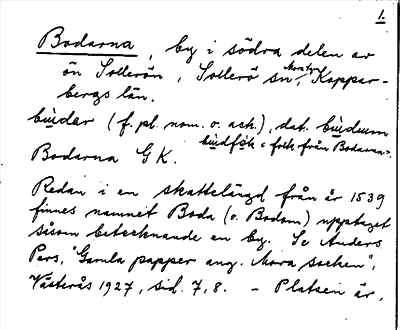 1.
Bodarna, by i södra delen av
ön Sollerön, Sollerö sn, Koppar-
bergs län.
bùdar (f. pl. nom. o. ack.), dat. bùdum
bùdfók = folk från Bodarna.
Bodarna GK.
Redan i en skattelängd från år 1539
finnes namnet Boda (o. Bodom) upptaget
såsom betecknande en by. Se Anders
Pers, "Gamla papper ang. Mora socken",
Västerås 1927, sid. 7, 8. – Platsen är,